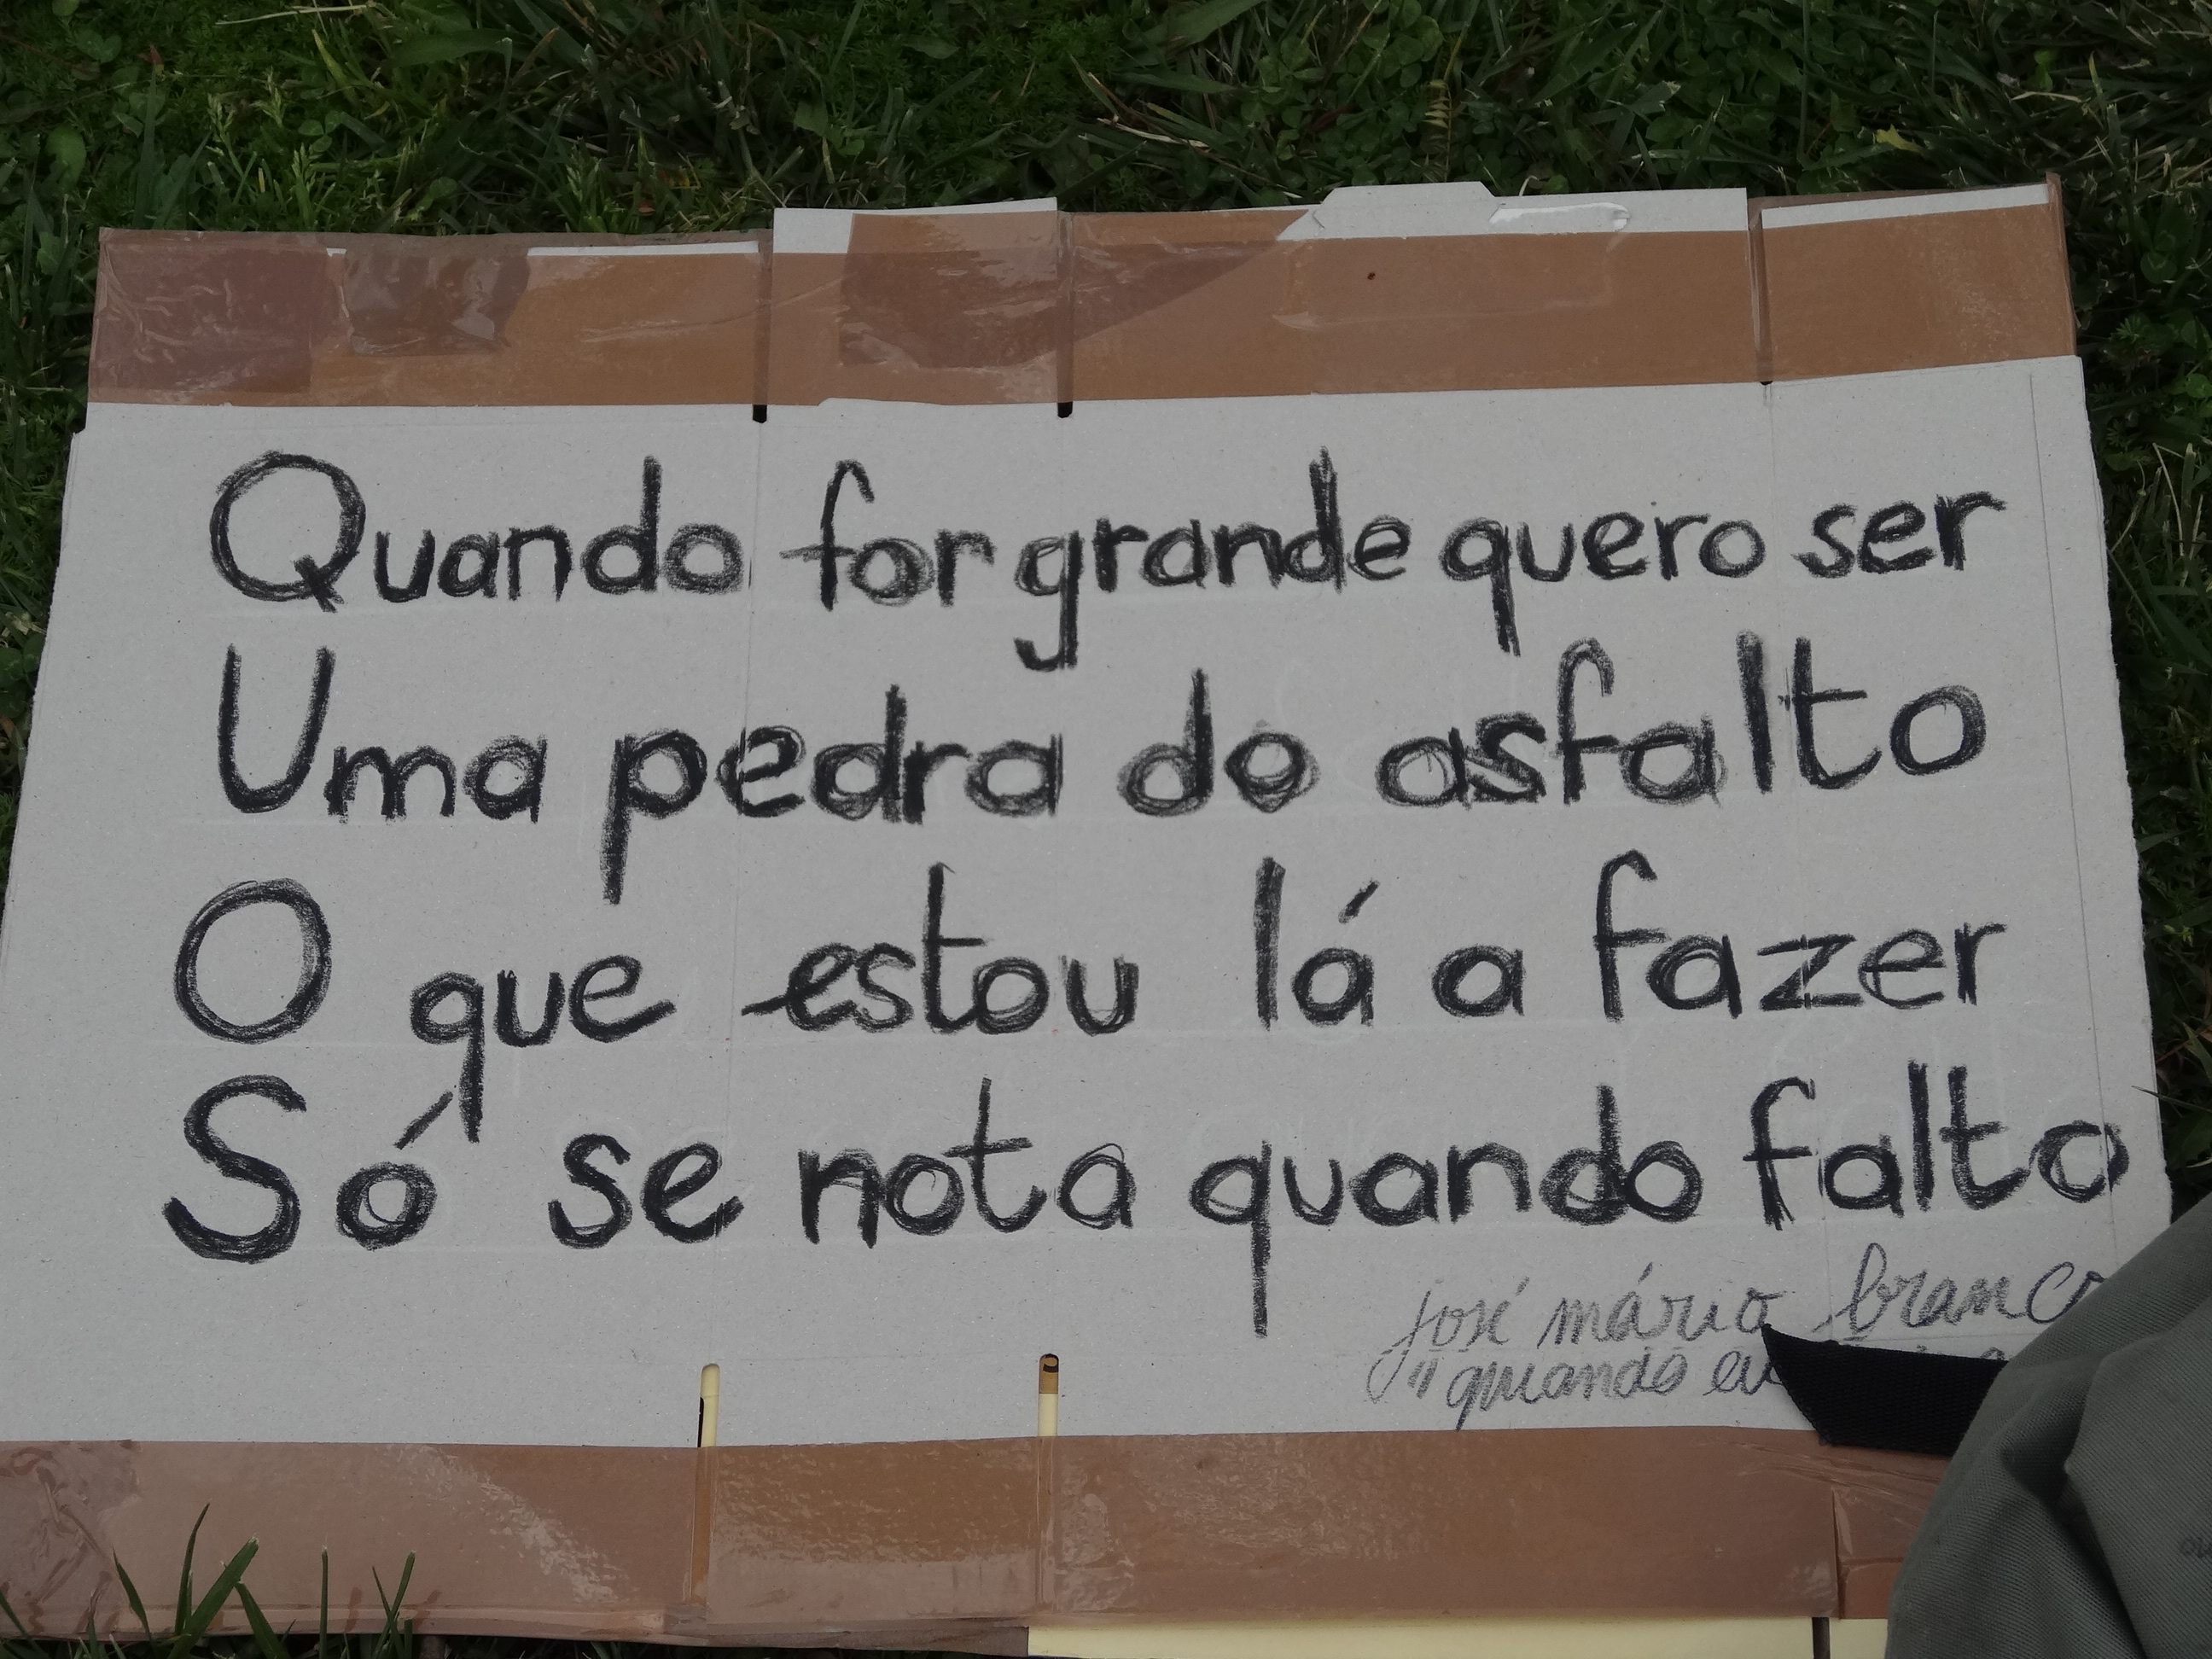 Quando for grande quero ser
Uma pedra do asfalto
O que estou lá a fazer
Só se nota quando falto
josé mário branco
"quando eu